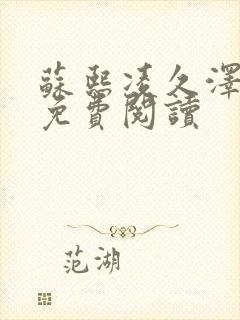 蘇熙凌久澤
免費閱讀
范湖